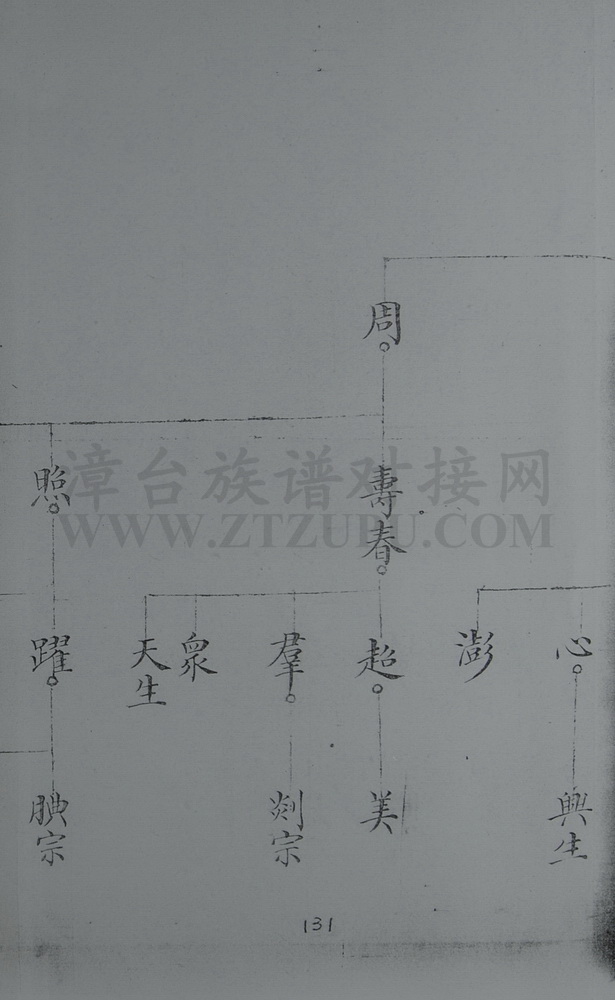 周
照
壽春
漳台族谱对接网
WWW.ZTZUPU.COM
心
澎
超
羣
衆
天生
躍
興生
美
剡宗
腆宗
131